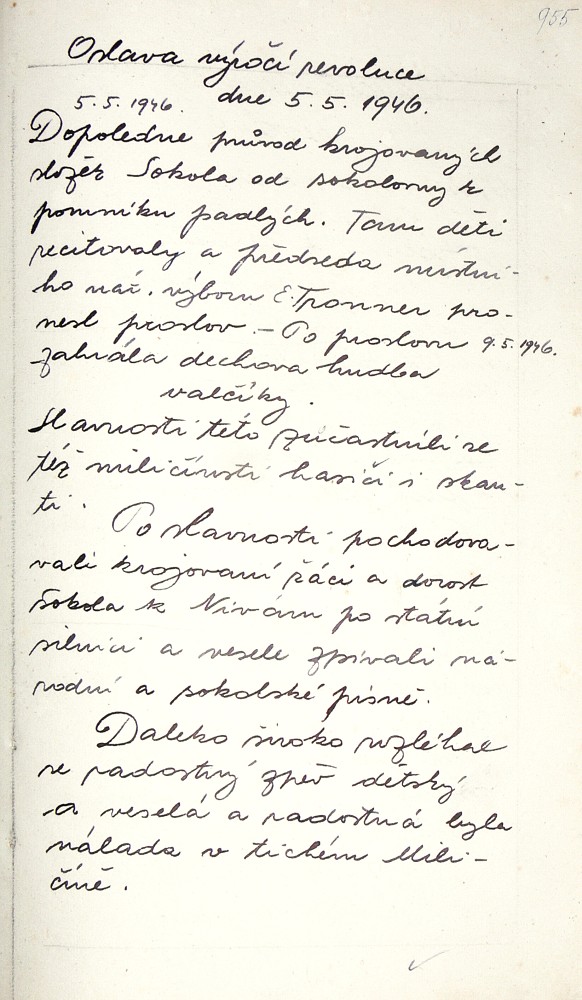 955
Oslava výročí revoluce
5.5.1946. dne 5.5.1946.
Dopoledne průvod krojovaných
složek Sokola od sokolovny k
pomníku padlých. Tam děti
recitovaly a předseda místní-
ho nár. výboru E. Tronner pro-
nesl proslov. – Po proslovu 9.5.1946.
zahrála dechova hudba
valčíky.
Slavnosti této zúčastnili se
též miličínští hasiči i skau-
ti.
Po slavnosti pochodova-
vali krojovaní žáci a dorost
Sokola k Nivám po státní
silnici a vesele zpívali ná-
rodní a sokolské písně.
Daleko široko rozléhal
se radostný zpěv dětský
a veselá a radostná byla
nálada v tichém Mili-
číně.